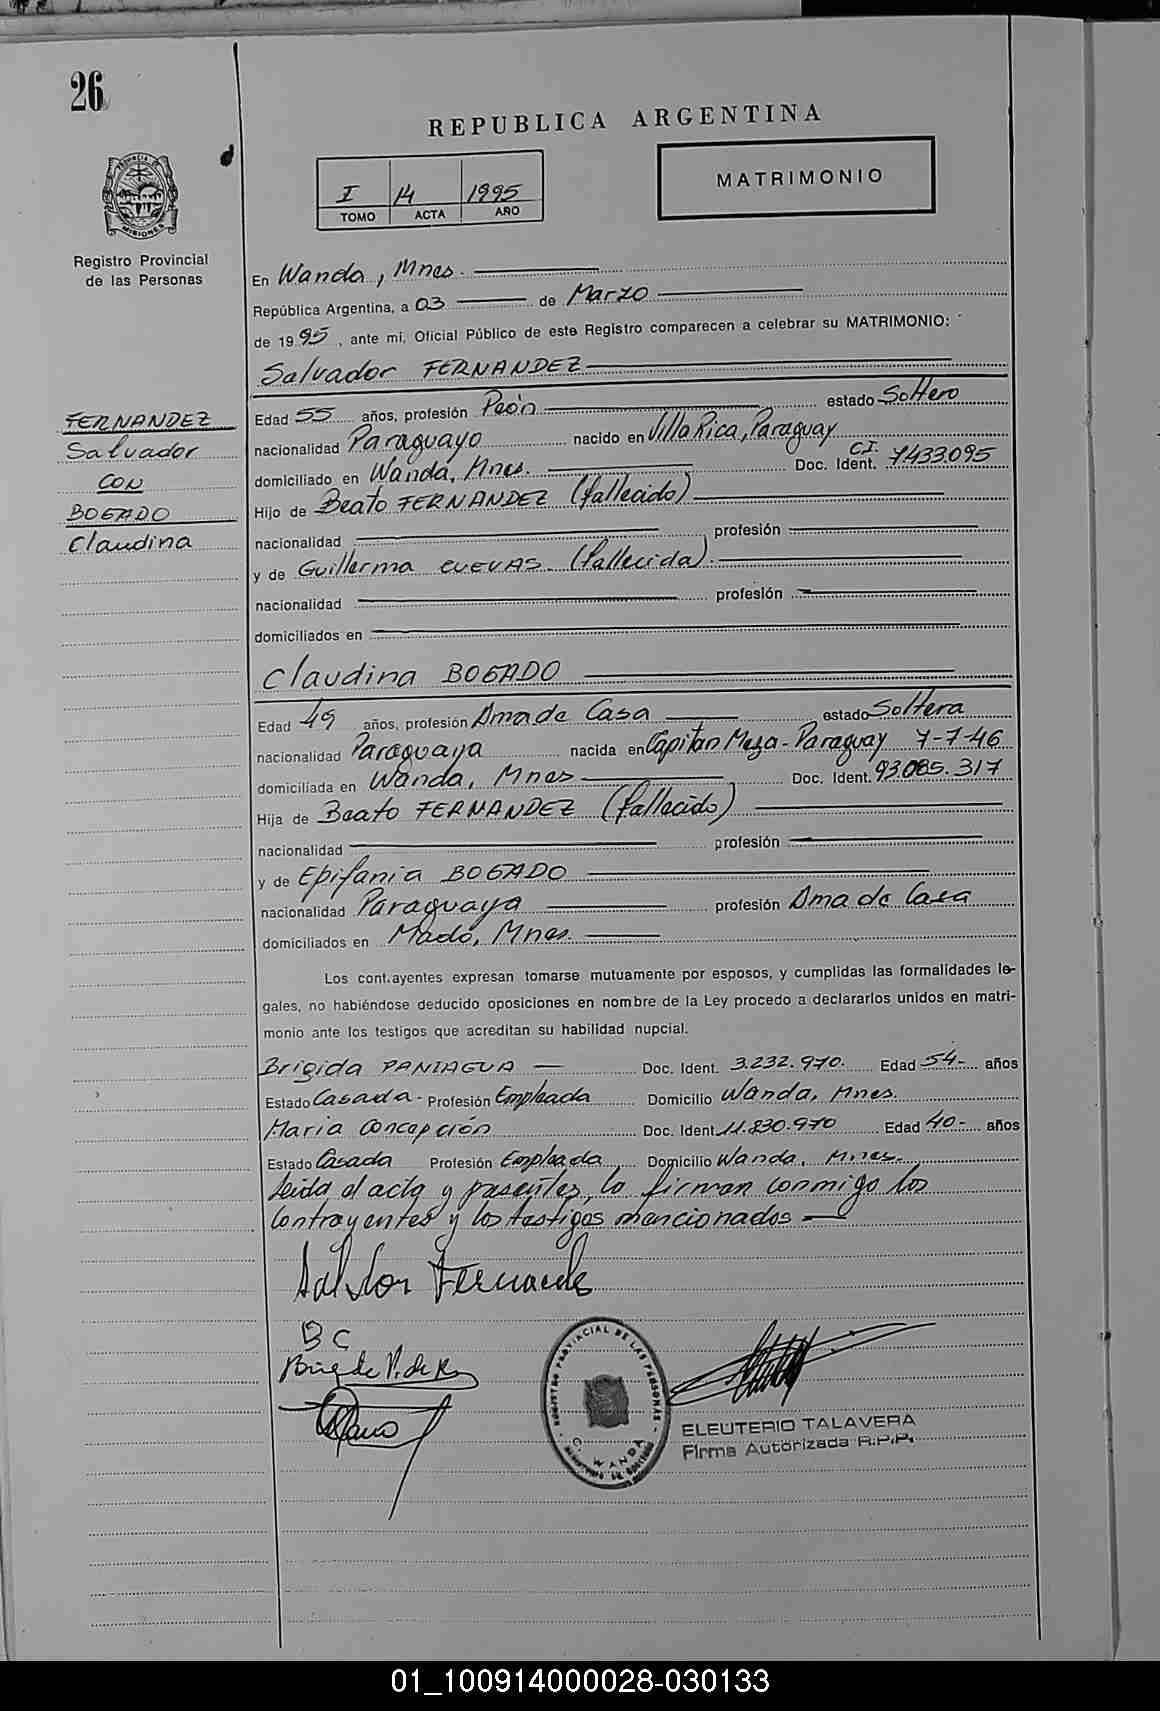 26
REPUBLICA ARGENTINA
I 14 1995
TOMO ACTA AÑO
MATRIMONIO
Registro Provincial
de las Personas
En Wanda, Mnes.
República Argentina, a 03 de Marzo
de 1995, ante mi, Oficial Público de este Registro comparecen a celebrar su MATRIMONIO:
Salvador FERNANDEZ
FERNANDEZ
Salvador
CON
BOGADO
Claudina
Edad 55 años, profesión Peón estado Soltero
nacionalidad Paraguayo nacido en Villa Rica, Paraguay
domiciliado en Wanda, Mnes. Doc. Ident. C.I. 7433.095
Hijo de Beato FERNANDEZ (fallecido)
nacionalidad profesión
y de Guillerma CUEVAS. (fallecida).
nacionalidad profesión
domiciliados en
Claudina BOGADO
Edad 49 años, profesión Ama de Casa estado Soltera
nacionalidad Paraguaya nacida en Capitan Meza - Paraguay 7-7-46
domiciliada en Wanda, Mnes Doc. Ident. 93.085.317
Hija de Beato FERNANDEZ (fallecido)
nacionalidad profesión
y de Epifania BOGADO
nacionalidad Paraguaya profesión Ama de Casa
domiciliados en Mado, Mnes.
Los cont.ayentes expresan tomarse mutuamente por esposos, y cumplidas las formalidades le-
gales, no habiéndose deducido oposiciones en nombre de la Ley procedo a declararlos unidos en matri-
monio ante los testigos que acreditan su habilidad nupcial.
Brigida PANIAGUA — Doc. Ident. 3.232.970. Edad 54- años
Estado Casada - Profesión Empleada Domicilio Wanda, Mnes.
Maria Concepción Doc. Ident. 11.830.970 Edad 40- años
Estado Casada Profesión Empleada Domicilio Wanda, Mnes.
Leida el acta y presentes, la firman conmigo los
contrayentes y los testigos mencionados —
Salvdor Fernande
B C
REGISTRO PROVINCIAL DE LAS PERSONAS
WANDA
ELEUTERIO TALAVERA
Firma Autorizada R.P.P.
01_100914000028-030133